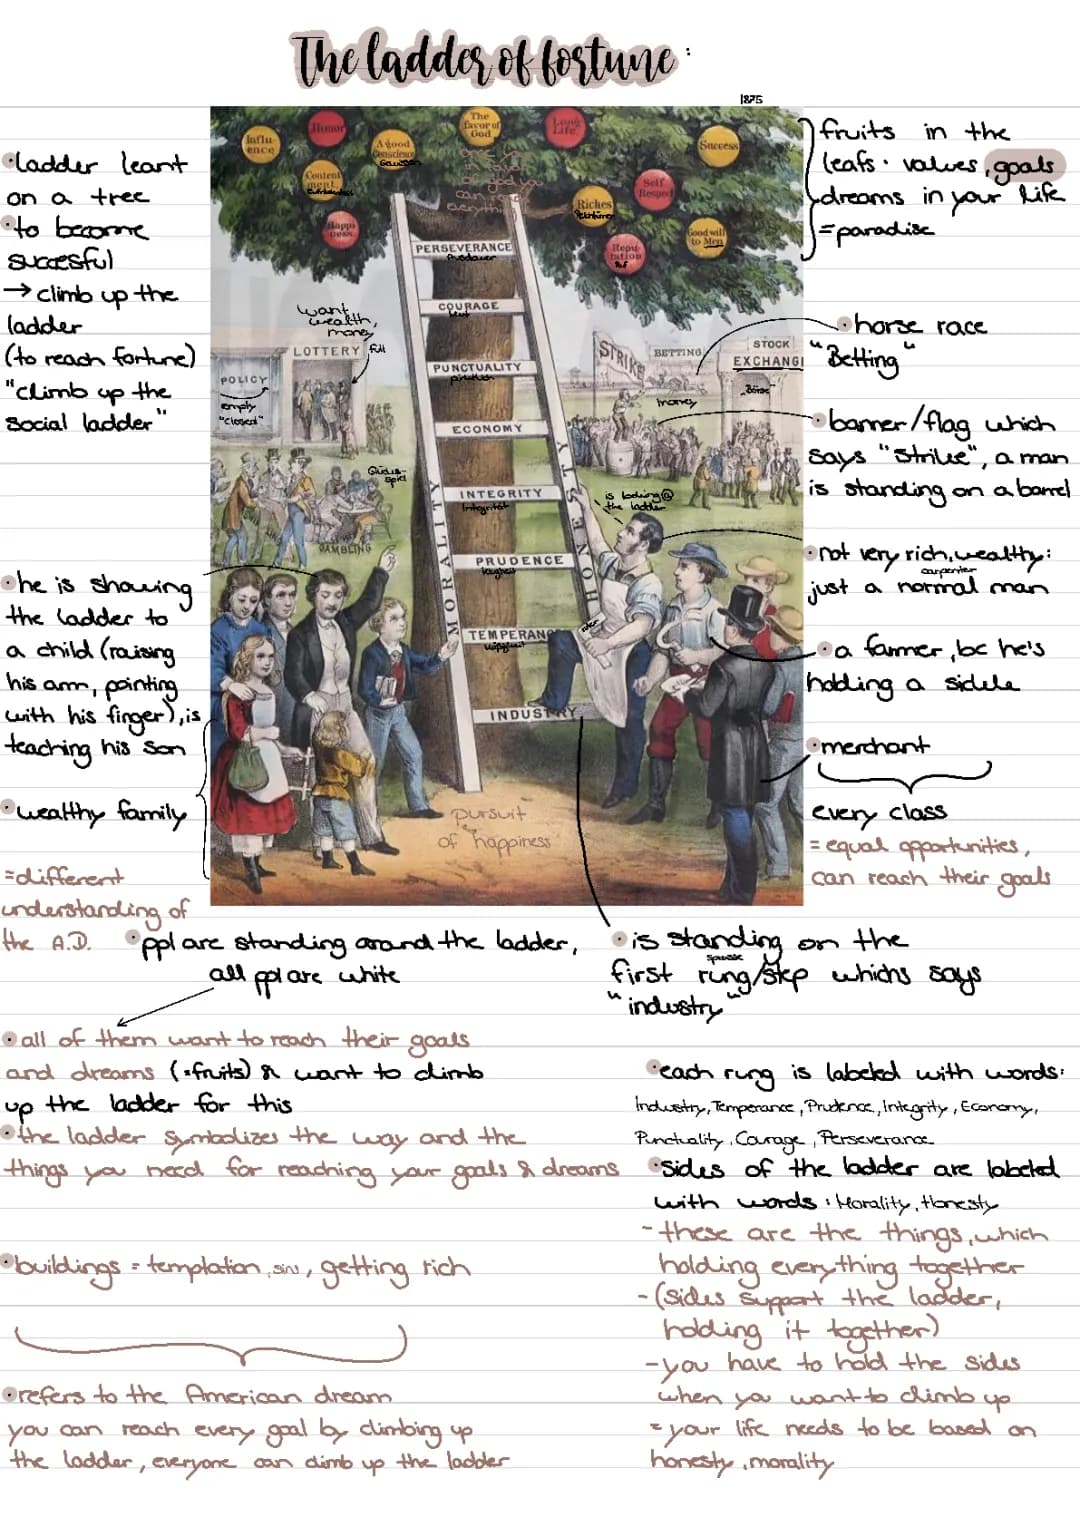 The ladder of fortune :
1875
•ladder leant
on a tree
•to become
succesful
→ climb up the
ladder
(to reach fortune)
"climb up the
social ladder"
•he is showing
the ladder to
a child (raising
his arm, pointing
with his finger), is
teaching his son
•wealthy family
=different
understanding of
the A.D.
Influ-
ence
Honor
A good
Conscience
The
favor of
God
Long
Life
Success
Content
ment
Self
Respect
Riches
Happi
ness
Repu-
tation
Ruf
Good will
to Men
PERSEVERANCE
COURAGE
Mut
PUNCTUALITY
ECONOMY
INTEGRITY
Integrität
PRUDENCE
TEMPERANC
INDUSTRY
MORALITY
HONESTY
want
wealth,
money
LOTTERY
full
POLICY
empty
"closed"
Glücks-
spiel
GAMBLING
STRIKE
BETTING
STOCK
EXCHANGE
"Börse"
money
is looking@
the ladder
pursuit
of happiness
fruits in the
leafs: values, goals
dreams in your life
=paradise
•horse race
"Betting"
•banner/flag which
says "Strike", a man
is standing on a barrel
•not very rich, wealthy:
carpenter
just a normal man
•a farmer, bc he's
holding a sickle
•merchant
every class
= equal opportunities,
can reach their goals
•ppl are standing around the ladder,
all ppl are white
•is standing on the
Sprosse
first rung/step whichs says
"industry"
•all of them want to reach their goals
and dreams (=fruits) & want to climb
up the ladder for this
•the ladder symbolizes the way and the
things you need for reaching your goals & dreams
•buildings = temptation, sin, getting rich
•refers to the American dream
you can reach every goal by climbing up
the ladder, everyone can climb up the ladder
•each rung is labeled with words:
Industry, Temperance, Prudence, Integrity, Economy,
Punctuality, Courage, Perseverance
•sides of the ladder are labeled
with words: Morality, Honesty
- these are the things, which
holding everything together
- (sides support the ladder,
holding it together)
- you have to hold the sides
when you want to climb up
= your life needs to be based on
honesty, morality